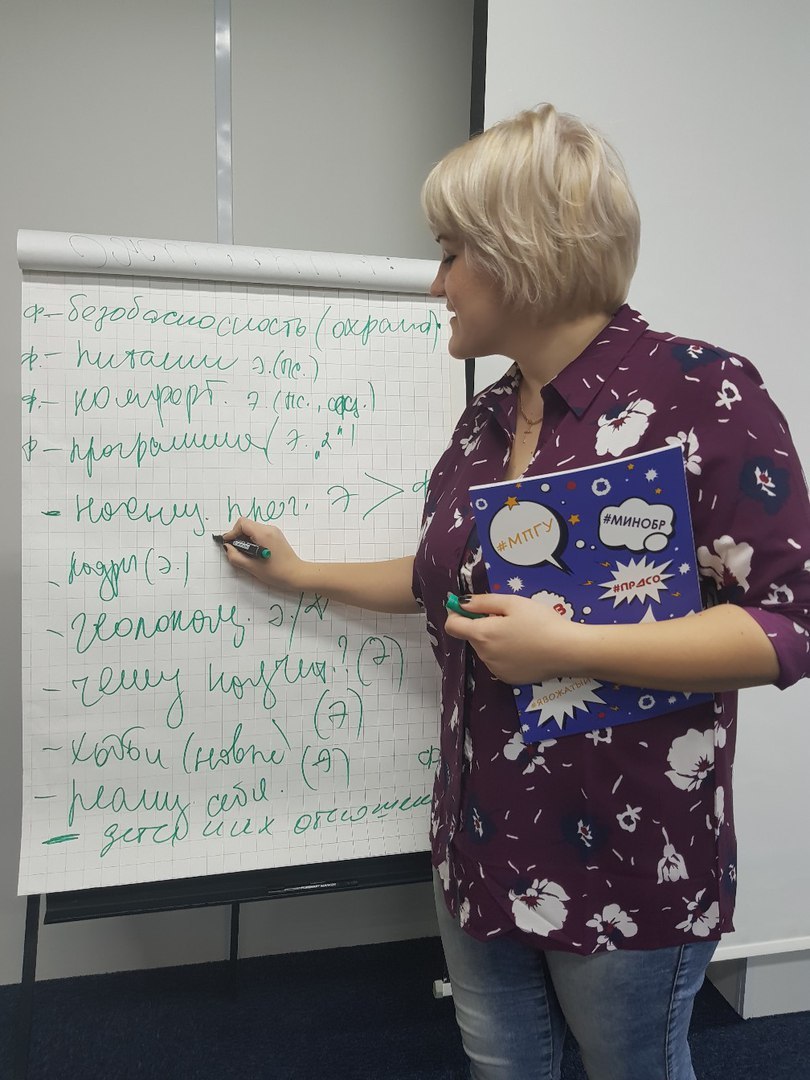 ф – безопасность (охрана).
ф. – питание э. (пс.)
ф. – комфорт. э. (пс.,
ф – программа (э. „2“)
– прог. Э > ф
– кадры (э.)
– э/ф
– чему науч.? (Э)
– хобби (новые) (Э)
– реализ. себя. (Э) ф
– детских отношен
#МПГУ
#МИНОБР
#ПРДСО
В
#ЯВОЖАТЫЙ